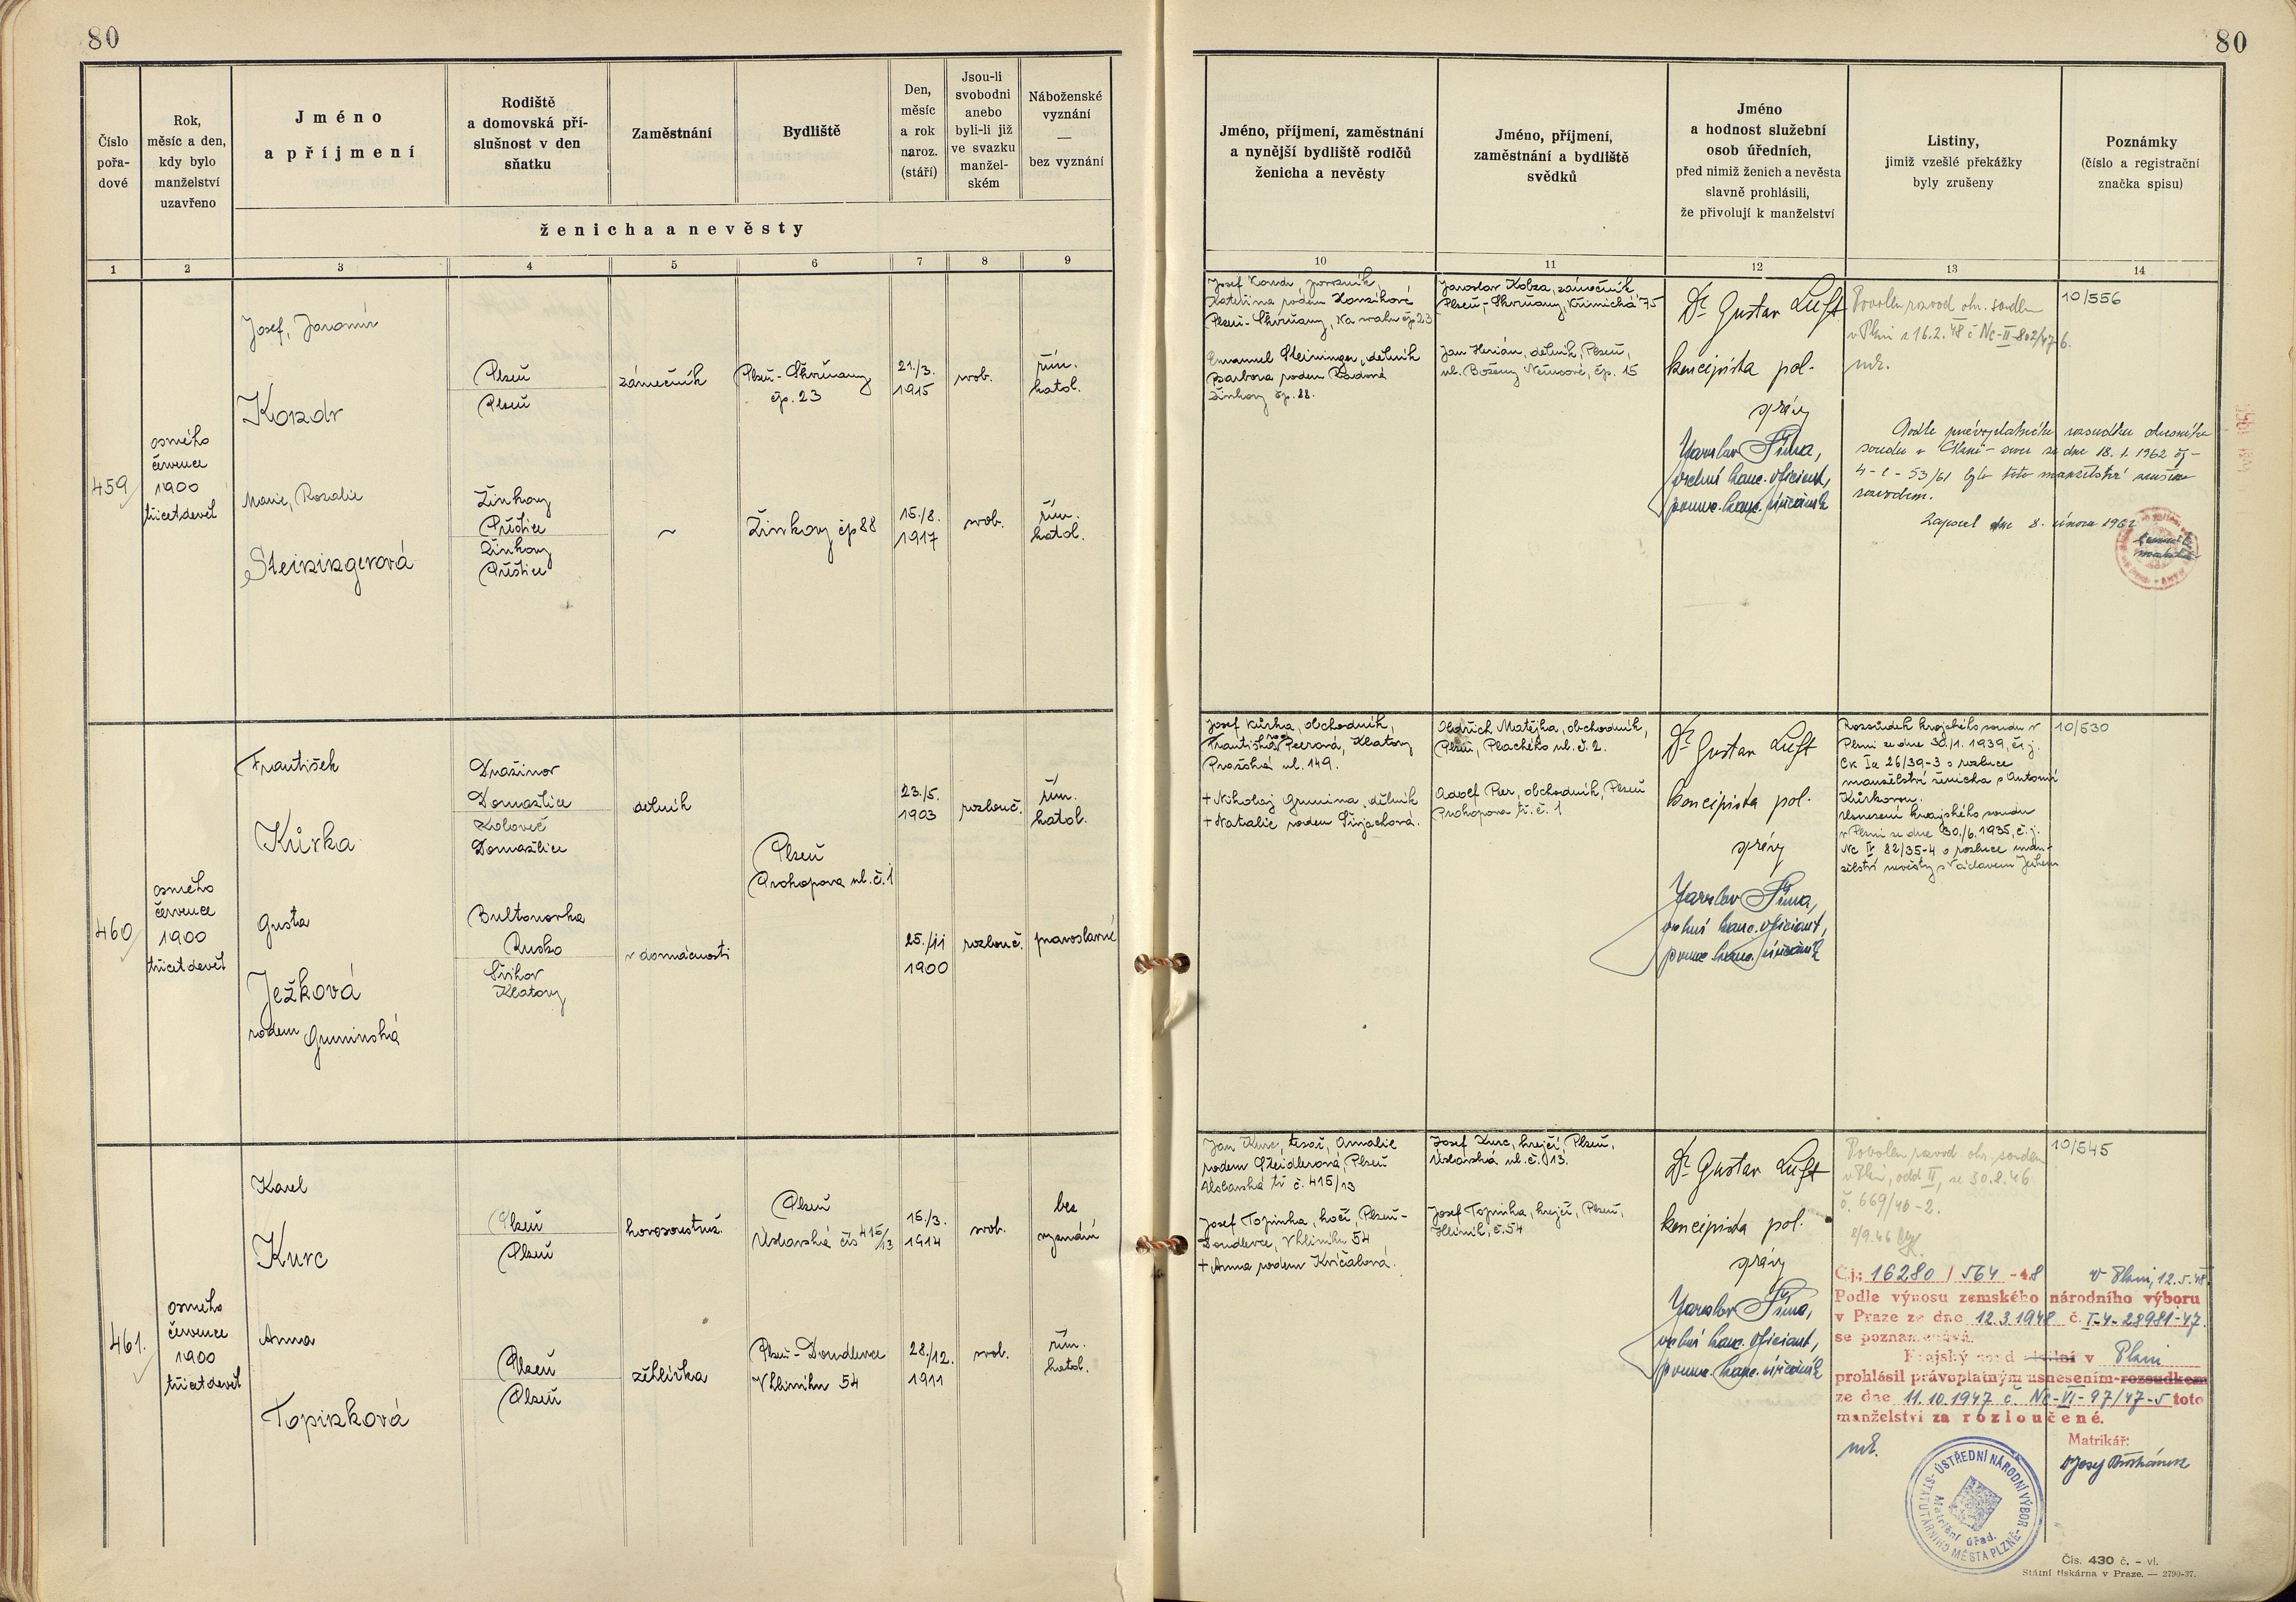 80
80
Číslo pořa-dové
Rok, měsíc a den, kdy bylo manželství uzavřeno
Jméno a příjmení
Rodiště a domovská pří-slušnost v den sňatku
Zaměstnání
Bydliště
Den, měsíc a rok naroz. (stáří)
Jsou-li svobodni anebo byli-li již ve svazku manžel-ském
Náboženské vyznání — bez vyznání
ženicha a nevěsty
Jméno, příjmení, zaměstnání a nynější bydliště rodičů ženicha a nevěsty
Jméno, příjmení, zaměstnání a bydliště svědků
Jméno a hodnost služební osob úředních, před nimiž ženich a nevěsta slavně prohlásili, že přivolují k manželství
Listiny, jimiž vzešlé překážky byly zrušeny
Poznámky (číslo a registrační značka spisu)
1 2 3 4 5 6 7 8 9 10 11 12 13 14
459
osmého
července
1900
třicet devět
Josef, Jaromír
Kozdr
Plzeň
Plzeň
zámečník
Plzeň-Skvrňany
čp. 23
21./3.
1915
svob.
řím.
katol.
Marie, Rozalie
Steiningerová
Žinkovy
Přeštice
Žinkovy
Přeštice
~
Žinkovy čp 88
15./8.
1917
svob.
řím.
katol.
Josef Kozdr,
Kateřina rodem
Plzeň-Skvrňany, Na svahu čp 23
Emanuel Steininger, dělník
Barbora rodem
Žinkovy čp. 88.
Jaroslav Kobza, zámečník
Plzeň-Skvrňany, Křimická 75
Jan Herián, dělník, Plzeň,
ul. Boženy Němcové, čp. 15
Dr Gustav Luft
koncipista pol.
správy
Jaroslav Šíma,
vrchní kanc. oficiant,
Povolen rozvod okr. soudem
v Plzni z 16.2.48 č Nc-II-802/47-6.
10/556
Podle právoplatného rozsudku okresního
soudu v Plzni - sever ze dne 18.1.1962 čj -
4-C-53/61 bylo toto manželství zrušeno
rozvodem.
Zapsal dne 8. února 1962
460
osmého
července
1900
třicet devět
František
Kůrka
Draženov
Domažlice
Koloveč
Domažlice
dělník
Plzeň
Prokopova ul. č. 1
23./5.
1903
rozlouč.
řím.
katol.
Gusta
Ježková
rodem Gruminská
Bultonovka
Rusko
Švihov
Klatovy
v domácnosti
25./11
1900
rozlouč.
pravoslavné
Josef Kůrka, obchodník,
Františka roz. Peerová, Klatovy
Pražská ul. 149.
+ Nikolaj Grumina, dělník
+ Natalie rodem
Oldřich Matějka, obchodník,
Plzeň, Plachého ul. č. 2.
Adolf Peer, obchodník, Plzeň
Prokopova tř. č. 1
Dr Gustav Luft
koncipista pol.
správy
Jaroslav Šíma,
vrchní kanc. oficiant,
Rozsudek krajského soudu v
Plzni ze dne 30./1. 1939, čs. j.
Ck Ia 26/39-3 o rozluce
manželství ženicha s Antonií
Kůrkovou.
Usnesení krajského soudu
v Plzni ze dne 30./6. 1935, č. j.
Nc IV 82/35-4 o rozluce man-
želství nevěsty s Václavem Ježkem
10/530
461.
osmého
července
1900
třicet devět
Karel
Kurc
Plzeň
Plzeň
kovosoustruž.
Plzeň
Úslavská čís 415/13
15./3.
1914
svob.
bez
vyznání
Anna
Topinková
Plzeň
Plzeň
žehlířka
Plzeň-Doudlevce
V hliníku 54
28./12.
1911
svob.
řím.
katol.
Jan Kurc, tesař, Amalie
rodem Steidlerová, Plzeň
Úslavská tř č. 415/13
Josef Topinka, kočí, Plzeň-
Doudlevce, V hliníku 54
+ Anna rodem
Josef Kurc, krejčí, Plzeň,
Úslavská ul. č. 13.
Josef Topinka, krejčí, Plzeň,
Hliník, č. 54
Dr Gustav Luft
koncipista pol.
správy
Jaroslav Šíma,
vrchní kanc. oficiant,
Povolen rozvod okr. soudem
v Plzni, odd II, ze 30.8.46
č. 669/46-2.
2/9.46
10/545
Č.j.: 16280 / 564 -48 V Plzni, 12.5.48
Podle výnosu zemského národního výboru
v Praze ze dne 12.3.1948 č. I-4-28981-47
se poznamenává:
Krajský soud civilní v Plzni
prohlásil právoplatným usnesením-rozsudkem
ze dne 11.10.1947 č Nc-VI-97/47-5 toto
manželství za rozloučené.
Matrikář:
ÚSTŘEDNÍ NÁRODNÍ VÝBOR STATUTÁRNÍHO MĚSTA PLZNĚ
Matriční úřad.
Čís. 430 č. - vl.
Státní tiskárna v Praze. — 2790-37.